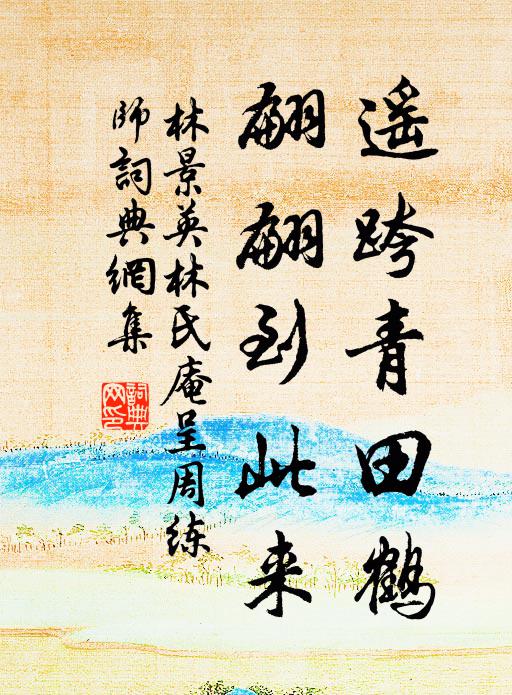 遥跨青田鹤
翩翩到此来
林景英林氏庵呈周练
师詞典網集
詞典
网印